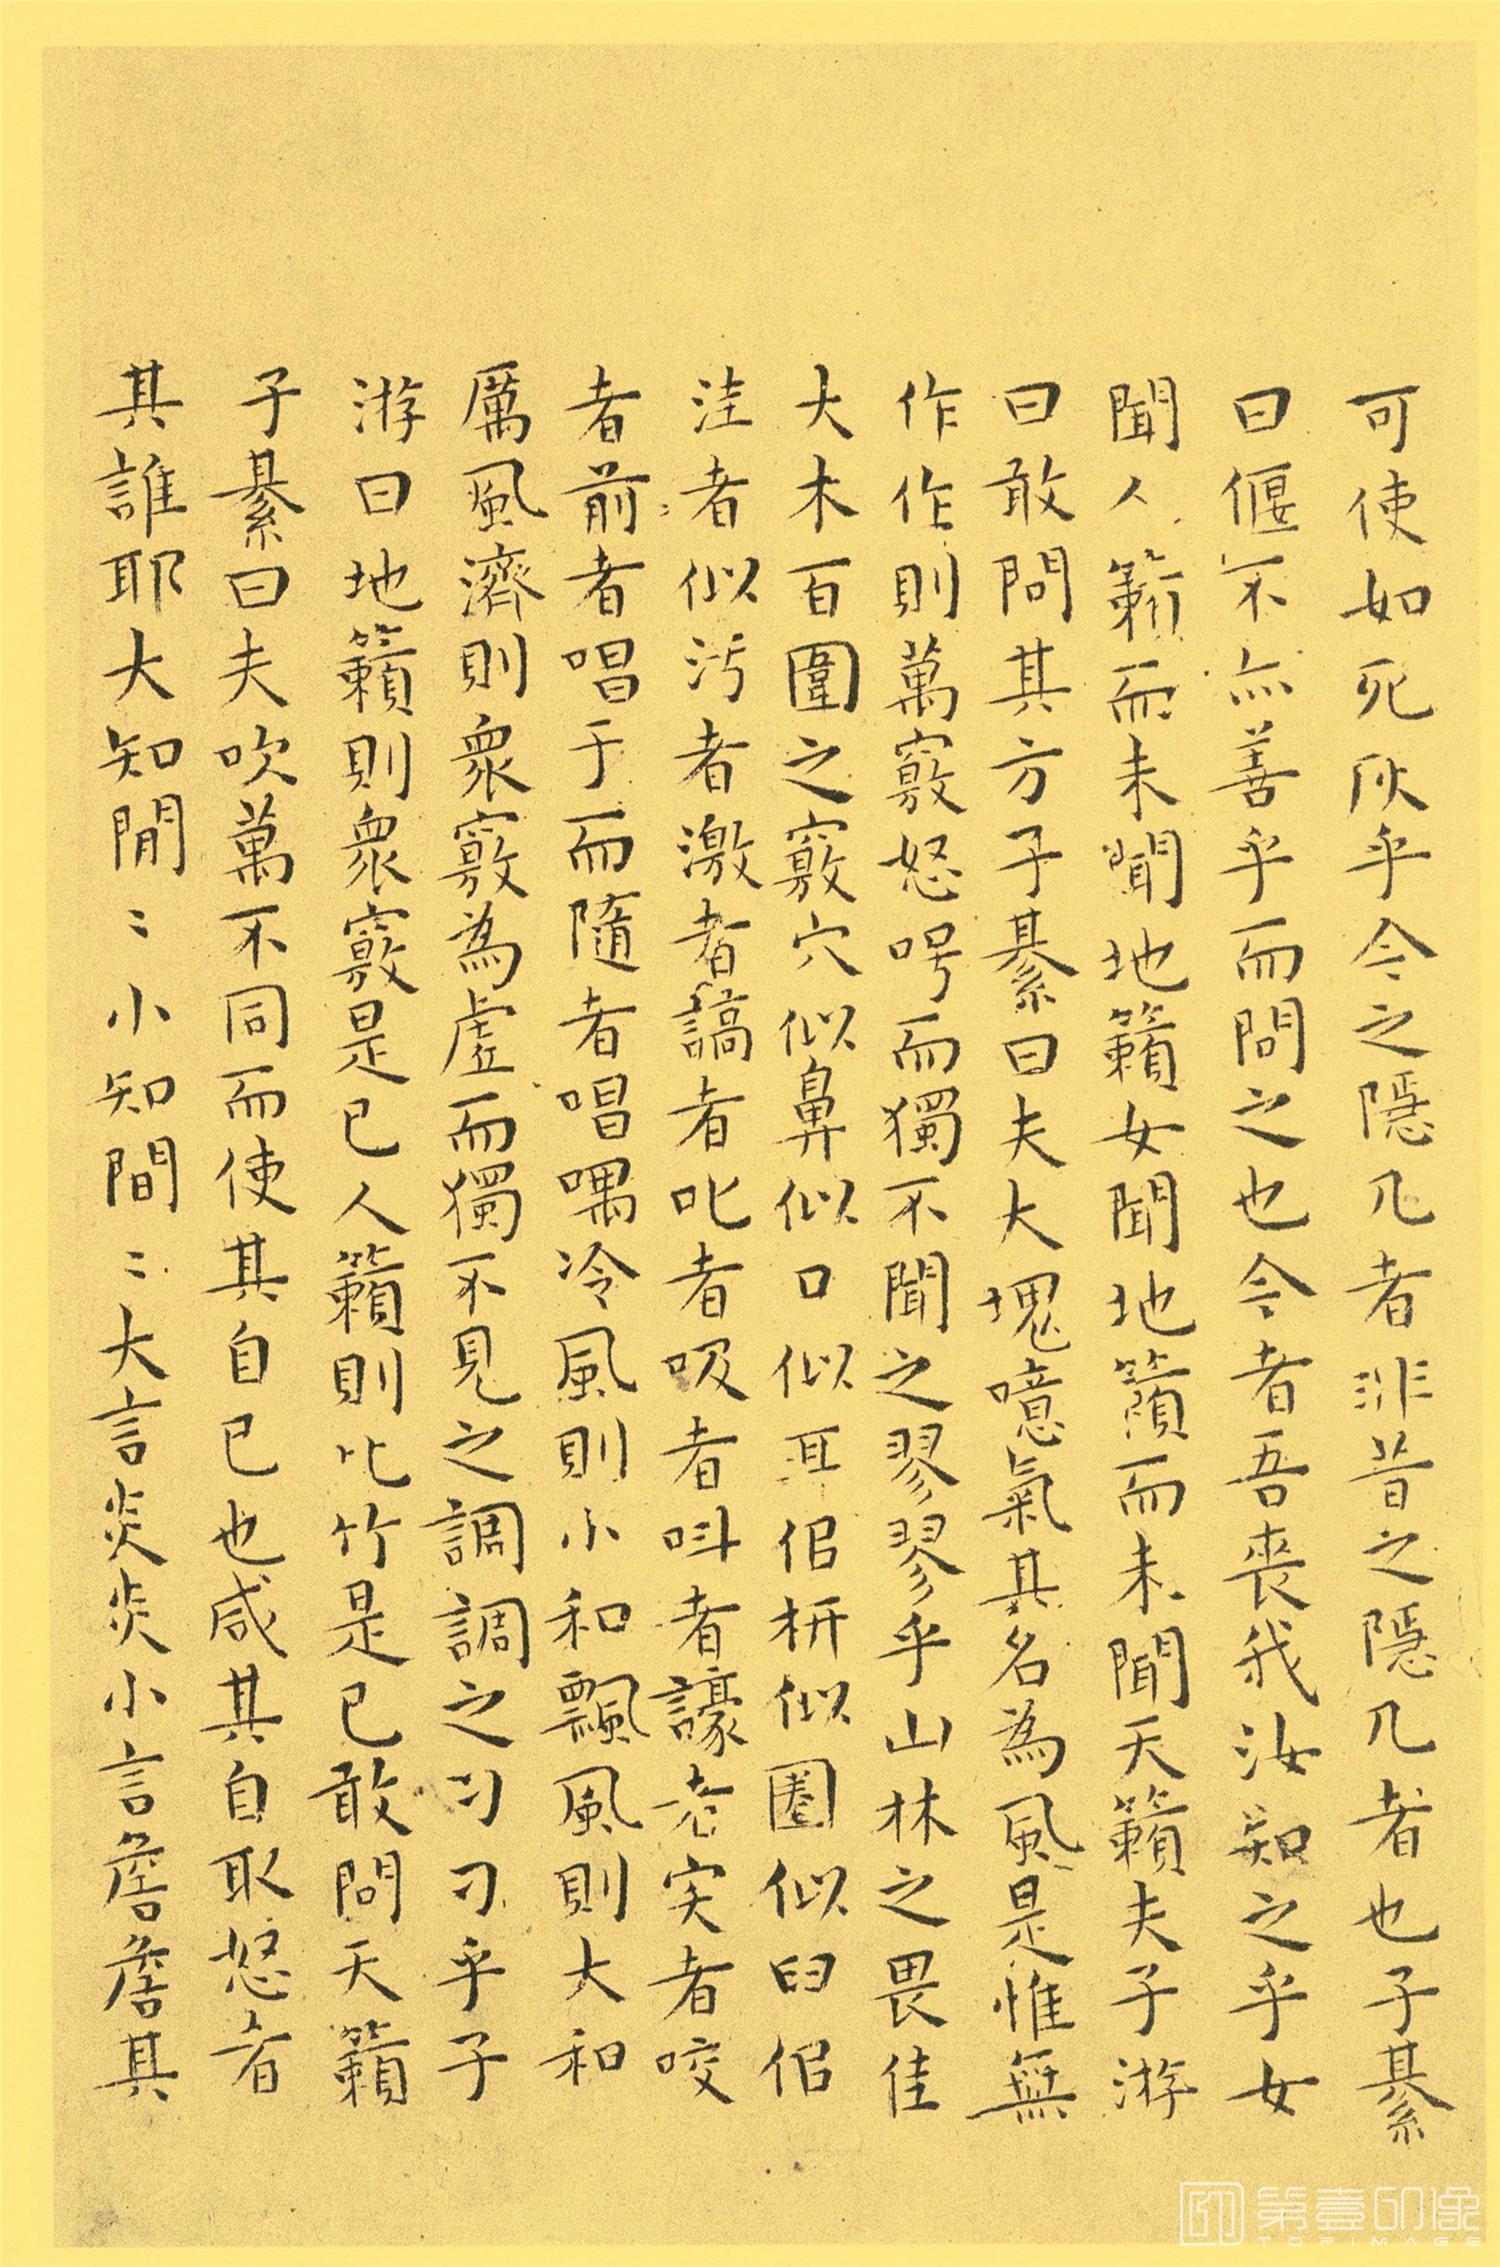 可使如死灰乎今之隱几者非昔之隱几者也子綦
曰偃不亦善乎而問之也今者吾喪我汝知之乎女
聞人籟而未聞地籟女聞地籟而未聞天籟夫子游
曰敢問其方子綦曰夫大塊噫氣其名為風是惟無
作作則萬竅怒呺而獨不聞之翏翏乎山林之畏佳
大木百圍之竅穴似鼻似口似洱佀枅似圈似臼佀
洼者似污者激者謞者叱者吸者叫者譹者実者咬
者前者者唱于而隨者唱喁冷風則小和飄風則大和
厲風濟則衆竅為虛而獨不見之調調之刁刁乎子
游曰地籟則衆竅是已人籟則比竹是已敢問天籟
子綦曰夫吹萬不同而使其自已也咸其自取怒者
其誰耶大知閒〻小知間〻大言炎炎小言詹詹其
第壹印像
TOPIMAGE